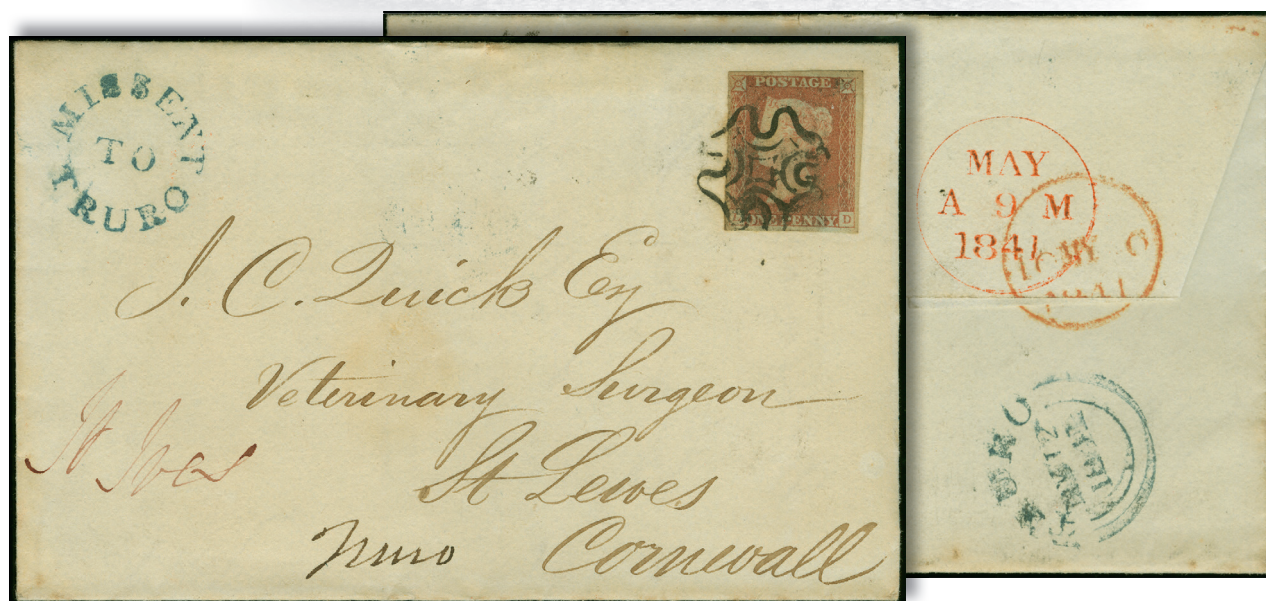 MISSENT
TO
TRURO
POSTAGE
ONE PENNY.
D
J. C. Quick Esq
Veterinary Surgeon
St Ives
St Lewes
Truro
Cornwall
MAY
A 9 M
1841
MY
1841
TRURO